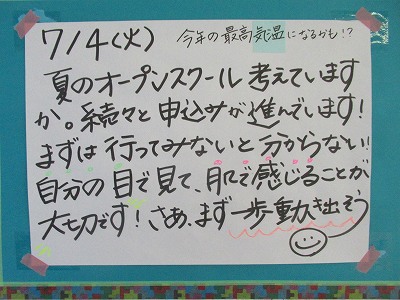 7/4(火) 今年の最高気温になるかも!?
夏のオープンスクール 考えています
か。続々と申込みが進んでいます!
まずは行ってみないと分からない!
自分の目で見て、肌で感じることが
大切です!さあ、まず一歩動き出そう